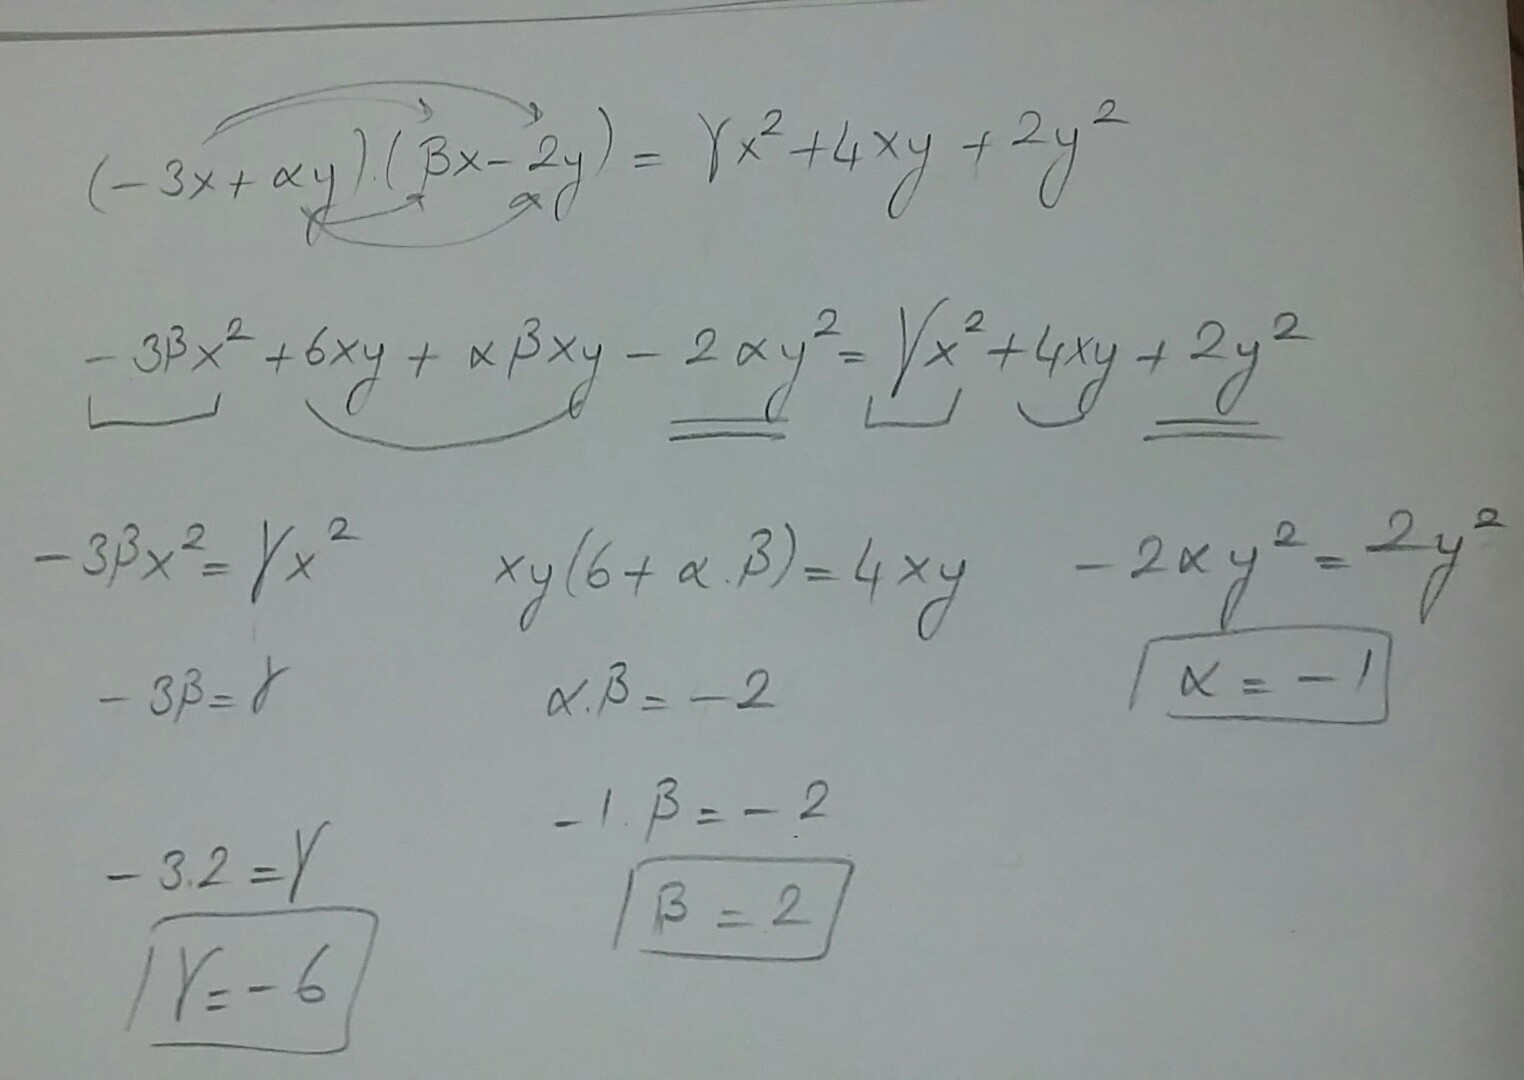 (-3x+αy).(βx-2y) = γx²+4xy+2y²
-3βx²+6xy+αβxy-2αy² = γx²+4xy+2y²
-3βx² = γx²
-3β = γ
-3.2 = γ
γ = -6
xy(6+α.β) = 4xy
α.β = -2
-1.β = -2
β = 2
-2αy² = 2y²
α = -1